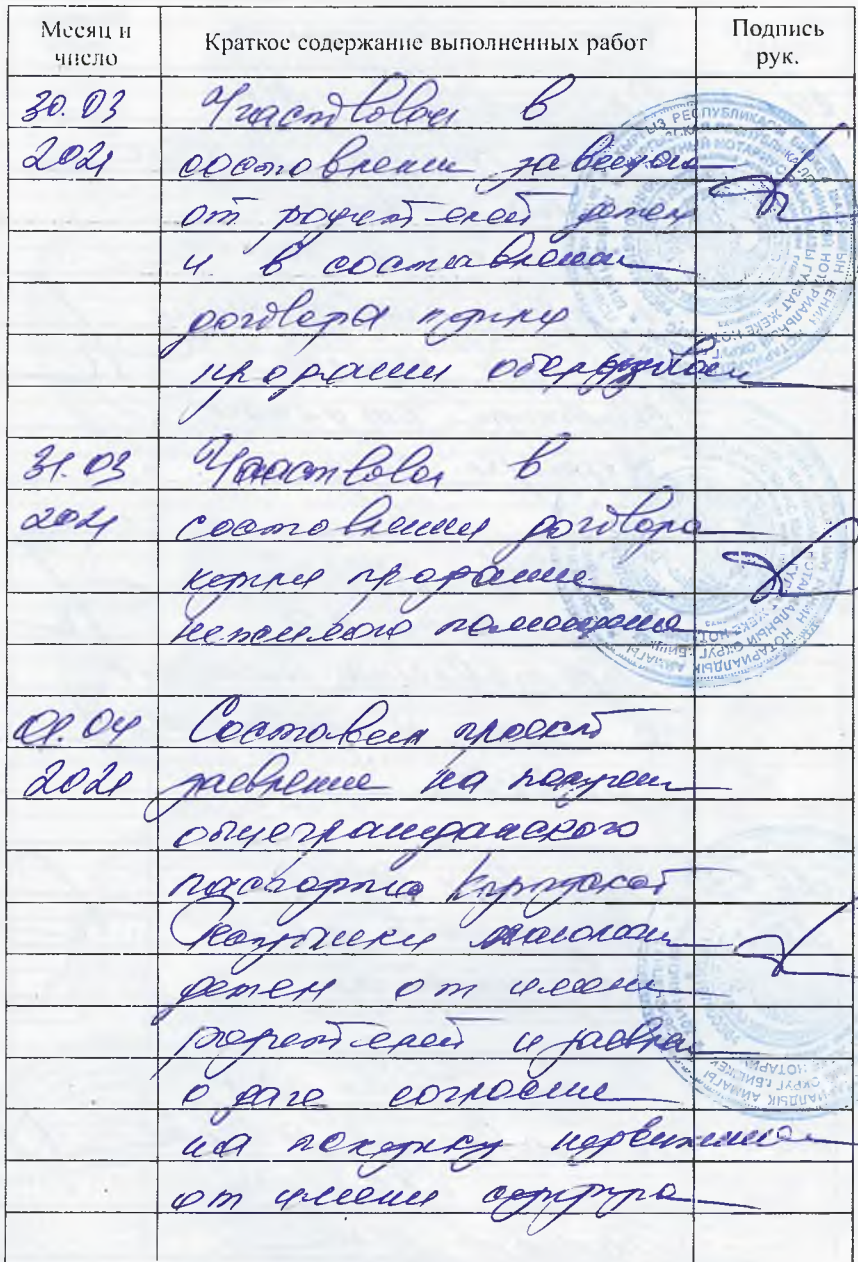 Месяц и число
Краткое содержание выполненных работ
Подпись рук.
30.03 Участвовал в
2021 составлении
от родителей детей
и в составлении
договора купли
продажи оборудован
31.03 Участвовал в
2021 составлении договора
купли продажи
нежилого помещения
01.04 Составлен проект
2021 заявление на получен
общегражданского
паспорта Кыргызской
Республики малолет
детей от имени
родителей и заявлен
о даче согласие
на покупку недвижимо
от имени супруга